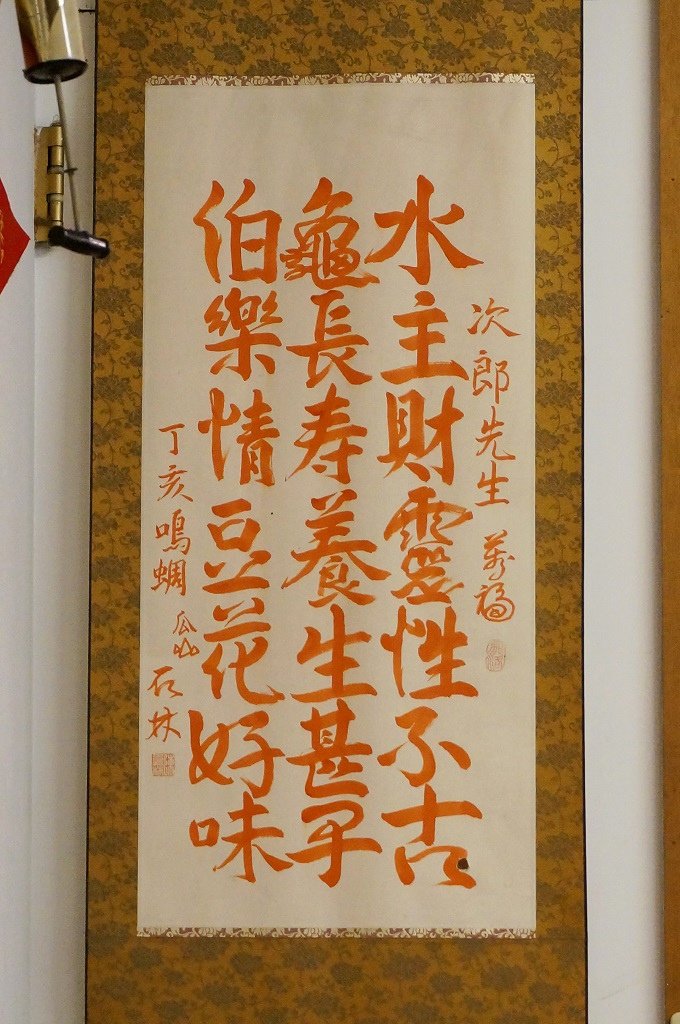 次郎先生 萬福
水主財靈性不古
龜長寿養生甚平
伯樂情豆花好味
丁亥鳴蜩 瓜山 石林